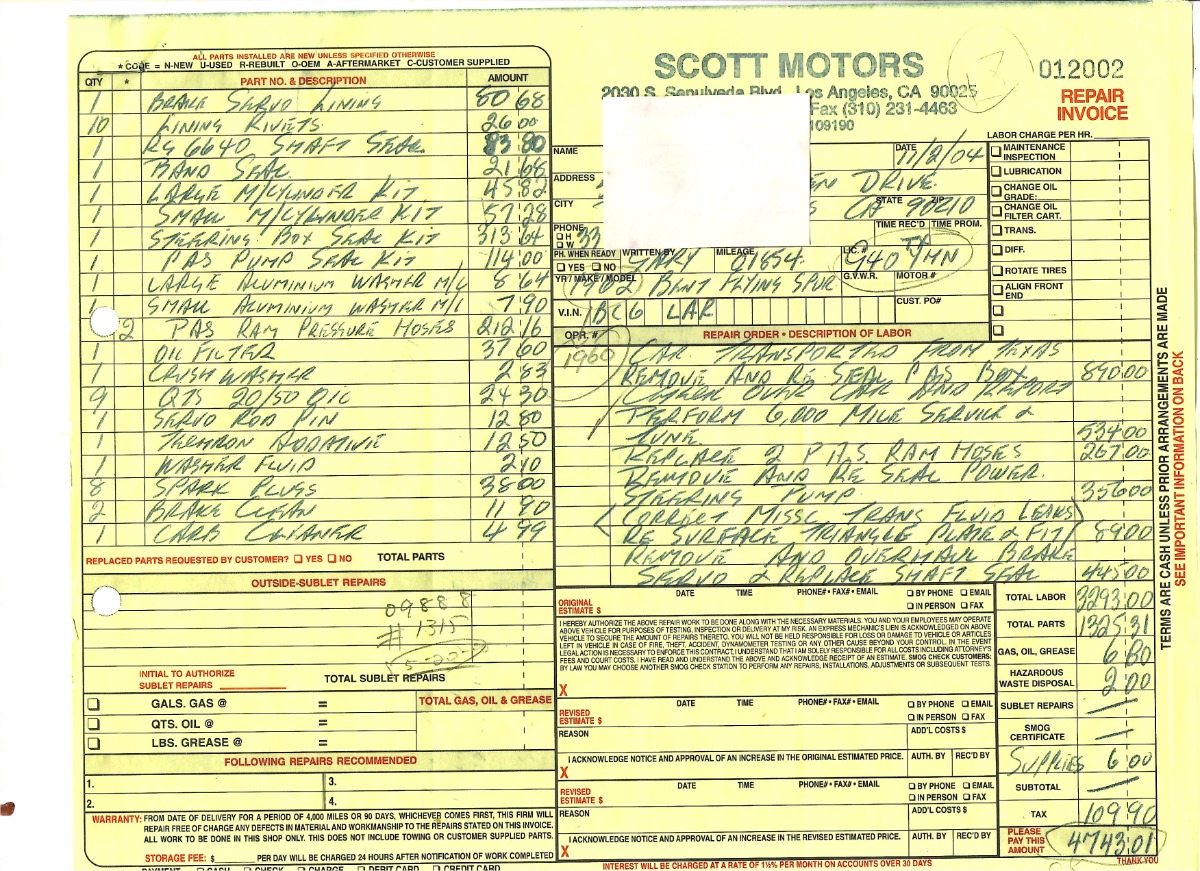 ALL PARTS INSTALLED ARE NEW UNLESS SPECIFIED OTHERWISE
* CODE = N-NEW U-USED R-REBUILT O-OEM A-AFTERMARKET C-CUSTOMER SUPPLIED
QTY * PART NO. & DESCRIPTION AMOUNT
1 BRAKE SERVO LINING 80 68
10 LINING RIVETS 26 00
1 RG 6640 SHAFT SEAL 83 80
1 BAND SEAL 21 68
1 LARGE M/CYLINDER KIT 45 82
1 SMALL M/CYLINDER KIT 57 28
1 STEERING BOX SEAL KIT 313 64
1 PAS PUMP SEAL KIT 114 00
1 LARGE ALUMINIUM WASHER M/C 8 64
1 SMALL ALUMINIUM WASHER M/C 7 90
2 PAS RAM PRESSURE HOSES 212 16
1 OIL FILTER 37 60
1 CRUSH WASHER 2 83
9 QTS 20/50 OIL 24 30
1 SERVO ROD PIN 12 80
1 ADDATIVE 12 50
1 WASHER FLUID 2 40
8 SPARK PLUGS 38 00
2 BRAKE CLEAN 11 90
1 CARB CLEANER 4 99
REPLACED PARTS REQUESTED BY CUSTOMER? YES NO TOTAL PARTS
OUTSIDE-SUBLET REPAIRS
09888
# 1315
INITIAL TO AUTHORIZE
SUBLET REPAIRS TOTAL SUBLET REPAIRS
GALS. GAS @ = TOTAL GAS, OIL & GREASE
QTS. OIL @ =
LBS. GREASE @ =
FOLLOWING REPAIRS RECOMMENDED
1. 3.
2. 4.
WARRANTY: FROM DATE OF DELIVERY FOR A PERIOD OF 4,000 MILES OR 90 DAYS, WHICHEVER COMES FIRST, THIS FIRM WILL
REPAIR FREE OF CHARGE ANY DEFECTS IN MATERIAL AND WORKMANSHIP TO THE REPAIRS STATED ON THIS INVOICE.
ALL WORK TO BE DONE IN THIS SHOP ONLY. THIS DOES NOT INCLUDE TOWING OR CUSTOMER SUPPLIED PARTS.
STORAGE FEE: $ PER DAY WILL BE CHARGED 24 HOURS AFTER NOTIFICATION OF WORK COMPLETED
PAYMENT CASH CHECK CHARGE DEBIT CARD CREDIT CARD
SCOTT MOTORS
2030 S. Sepulveda Blvd., Los Angeles, CA 90025
Fax (310) 231-4463
109190
17
012002
REPAIR
INVOICE
LABOR CHARGE PER HR.
NAME DATE 11/2/04
ADDRESS DRIVE
CITY STATE CA ZIP 90210
PHONE H W 33 TIME REC'D TIME PROM.
PH. WHEN READY YES NO WRITTEN BY GARY MILEAGE 01854 LIC. # G40 YHN TX
G.V.W.R. MOTOR #
YR / MAKE / MODEL 1962 BENT FLYING SPUR
V.I.N. BC6 LAR CUST. PO#
MAINTENANCE INSPECTION
LUBRICATION
CHANGE OIL GRADE:
CHANGE OIL FILTER CART.
TRANS.
DIFF.
ROTATE TIRES
ALIGN FRONT END
OPR. # REPAIR ORDER • DESCRIPTION OF LABOR
1960 CAR TRANSPORTED FROM TEXAS
REMOVE AND RE SEAL PAS BOX 890 00
CHECK OVER CAR AND REPORT
PERFORM 6,000 MILE SERVICE &
TUNE 534 00
REPLACE 2 P.A.S. RAM HOSES 267 00
REMOVE AND RE SEAL POWER
STEERING PUMP 356 00
(CORRECT MISSC TRANS FLUID LEAKS)
RE SURFACE TRIANGLE PLATE & FIT 89 00
REMOVE AND OVERHAUL BRAKE
SERVO & REPLACE SHAFT SEAL 445 00
ORIGINAL ESTIMATE $ DATE TIME PHONE# • FAX# • EMAIL BY PHONE EMAIL IN PERSON FAX
I HEREBY AUTHORIZE THE ABOVE REPAIR WORK TO BE DONE ALONG WITH THE NECESSARY MATERIALS. YOU AND YOUR EMPLOYEES MAY OPERATE
ABOVE VEHICLE FOR PURPOSES OF TESTING, INSPECTION OR DELIVERY AT MY RISK. AN EXPRESS MECHANIC'S LIEN IS ACKNOWLEDGED ON ABOVE
VEHICLE TO SECURE THE AMOUNT OF REPAIRS THERETO. YOU WILL NOT BE HELD RESPONSIBLE FOR LOSS OR DAMAGE TO VEHICLE OR ARTICLES
LEFT IN VEHICLE IN CASE OF FIRE, THEFT, ACCIDENT, DYNAMOMETER TESTING OR ANY OTHER CAUSE BEYOND YOUR CONTROL. IN THE EVENT
LEGAL ACTION IS NECESSARY TO ENFORCE THIS CONTRACT, I UNDERSTAND THAT I AM SOLELY RESPONSIBLE FOR ALL COSTS INCLUDING ATTORNEY'S
FEES AND COURT COSTS. I HAVE READ AND UNDERSTAND THE ABOVE AND ACKNOWLEDGE RECEIPT OF AN ESTIMATE. SMOG CHECK CUSTOMERS:
BY LAW YOU MAY CHOOSE ANOTHER SMOG CHECK STATION TO PERFORM ANY REPAIRS, INSTALLATIONS, ADJUSTMENTS OR SUBSEQUENT TESTS.
X
REVISED ESTIMATE $ DATE TIME PHONE# • FAX# • EMAIL BY PHONE EMAIL IN PERSON FAX
REASON ADD'L COSTS $
I ACKNOWLEDGE NOTICE AND APPROVAL OF AN INCREASE IN THE ORIGINAL ESTIMATED PRICE. AUTH. BY REC'D BY
X
REVISED ESTIMATE $ DATE TIME PHONE# • FAX# • EMAIL BY PHONE EMAIL IN PERSON FAX
REASON ADD'L COSTS $
I ACKNOWLEDGE NOTICE AND APPROVAL OF AN INCREASE IN THE REVISED ESTIMATED PRICE. AUTH. BY REC'D BY
X
TOTAL LABOR 3293 00
TOTAL PARTS 1325 31
GAS, OIL, GREASE 6 80
HAZARDOUS WASTE DISPOSAL 2 00
SUBLET REPAIRS —
SMOG CERTIFICATE —
SUPPLIES 6 00
SUBTOTAL —
TAX 109 90
PLEASE PAY THIS AMOUNT 4743 01
THANK YOU
INTEREST WILL BE CHARGED AT A RATE OF 1½% PER MONTH ON ACCOUNTS OVER 30 DAYS
TERMS ARE CASH UNLESS PRIOR ARRANGEMENTS ARE MADE
SEE IMPORTANT INFORMATION ON BACK